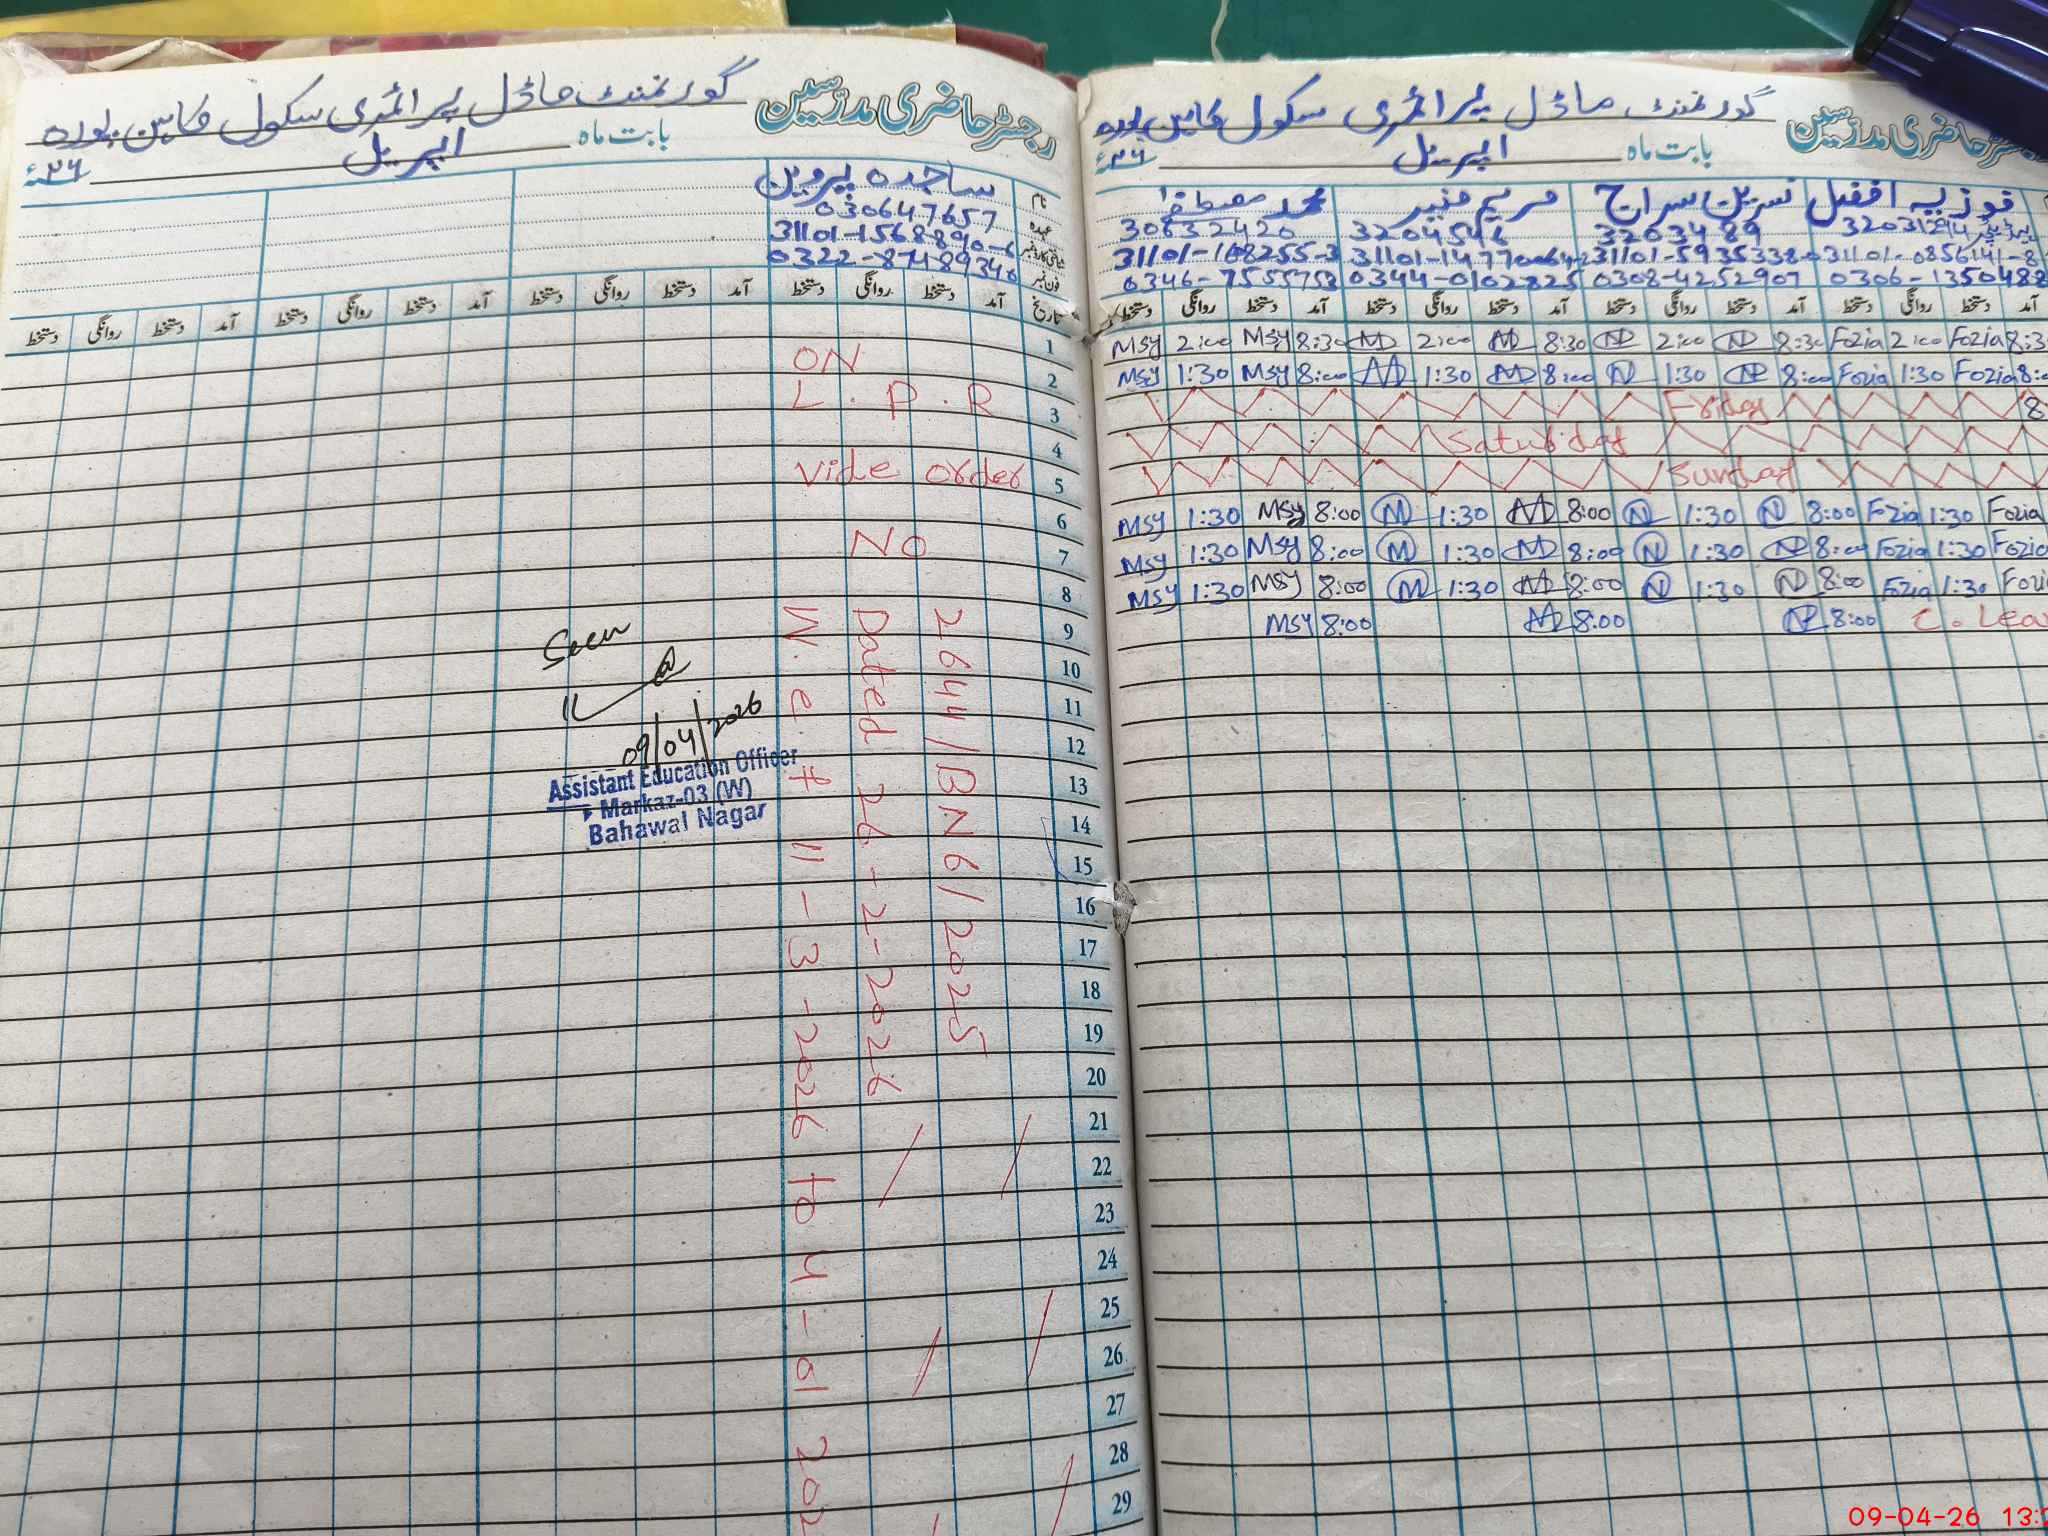 رجسٹر حاضری مدرسین گورنمنٹ ماڈل پرائمری سکول
بابت ماہ اپریل ۲۶ء
نام ساجدہ پروین
عہدہ 030647657
31101-1568890-6
فون نمبر 0322-8748934
تاریخ آمد دستخط روانگی دستخط آمد دستخط روانگی دستخط آمد دستخط روانگی دستخط آمد دستخط روانگی دستخط
1
ON
2
L.P.R
3
4
Vide order
5
6
NO
7
8
9
10
11
12
13
14
15
16
17
18
19
20
21
22
23
24
25
26
27
28
29
2644/BN6/2025
Dated 26-2-2026
W.e.f 11-3-2026 to 4-01 202
Seen
09/04/2026
Assistant Education Officer
Markaz-03 (W)
Bahawal Nagar
رجسٹر حاضری مدرسین گورنمنٹ ماڈل پرائمری سکول
بابت ماہ اپریل ۲۶ء
فوزیہ افضل نسرین سراج مریم منیر محمد مصطفیٰ
30632420 3204546 3203489
31101-168255-3 31101-5935338
0346-7555753 0344-0102825 0308-4252907 0306-1350488
آمد دستخط روانگی دستخط آمد دستخط روانگی دستخط آمد دستخط روانگی دستخط آمد دستخط روانگی دستخط
Msy 2:00 Msy 8:30 M 2:00 M 8:30 N 2:00 N 8:30 Fozia 2:00 Fozia 8:3
Msy 1:30 Msy 8:00 M 1:30 M 8:00 N 1:30 N 8:00 Fozia 1:30 Fozia 8:0
Friday 8
Saturday
Sunday
Msy 1:30 Msy 8:00 M 1:30 M 8:00 N 1:30 N 8:00 Fozia 1:30 Fozia
Msy 1:30 Msy 8:00 M 1:30 M 8:00 N 1:30 N 8:00 Fozia 1:30 Fozia
Msy 1:30 Msy 8:00 M 1:30 M 8:00 N 1:30 N 8:00 Fozia 1:30 Fozi
Msy 8:00 M 8:00 N 8:00 C. Lea
09-04-26 13:2